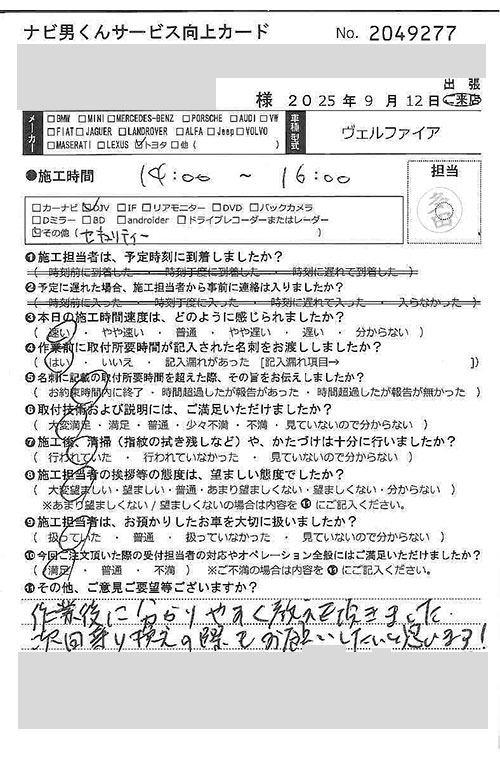 ナビ男くんサービス向上カード No. 2049277
出張
様 2025年9月12日 ご来店
メーカー □BMW □MINI □MERCEDES-BENZ □PORSCHE □AUDI □VW
□FIAT □JAGUER □LANDROVER □ALFA □Jeep □VOLVO
□MASERATI □LEXUS ☑トヨタ □他( )
車種型式 ヴェルファイア
●施工時間 14:00 ~ 16:00
担当
□カーナビ ☑DJV □IF □リアモニター □DVD □バックカメラ
□Dミラー □BD □androider □ドライブレコーダーまたはレーダー
☑その他( セキュリティー )
❶施工担当者は、予定時刻に到着しましたか?
( 時刻前に到着した ・ 時刻丁度に到着した ・ 時刻に遅れて到着した )
❷予定に遅れた場合、施工担当者から事前に連絡は入りましたか?
( 時刻前に入った ・ 時刻丁度に入った ・ 時刻に遅れて入った ・ 入らなかった )
❸本日の施工時間速度は、どのように感じられましたか?
( 速い ・ やや速い ・ 普通 ・ やや遅い ・ 遅い ・ 分からない )
❹作業前に取付所要時間が記入された名刺をお渡ししましたか?
( はい ・ いいえ ・ 記入漏れがあった [記入漏れ項目→ )
❺名刺に記載の取付所要時間を超えた際、その旨をお伝えしましたか?
( お約束時間内に終了 ・ 時間超過したが報告があった ・ 時間超過したが報告が無かった )
❻取付技術および説明には、ご満足いただけましたか?
( 大変満足 ・ 満足 ・ 普通 ・ 少々不満 ・ 不満 ・ 見ていないので分からない )
❼施工後、清掃(指紋の拭き残しなど)や、かたづけは十分に行いましたか?
( 行われていた ・ 行われていなかった ・ 見ていないので分からない )
❽施工担当者の挨拶等の態度は、望ましい態度でしたか?
( 大変望ましい・望ましい・普通・あまり望ましくない・望ましくない・分からない )
※あまり望ましくない/望ましくないの場合は内容を⓫にご記入ください。
❾施工担当者は、お預かりしたお車を大切に扱いましたか?
( 扱っていた ・ 普通 ・ 扱っていなかった ・ 見ていないので分からない )
❿今回ご注文頂いた際の受付担当者の対応やオペレーション全般にはご満足いただけましたか?
( 満足 ・ 普通 ・ 不満 ) ※ご不満の場合は内容を⓫にご記入ください。
⓫その他、ご意見ご要望等ございますか?
作業後に分かりやすく教えて頂きました.
次回乗り換えの際もお願いしたいと思います!